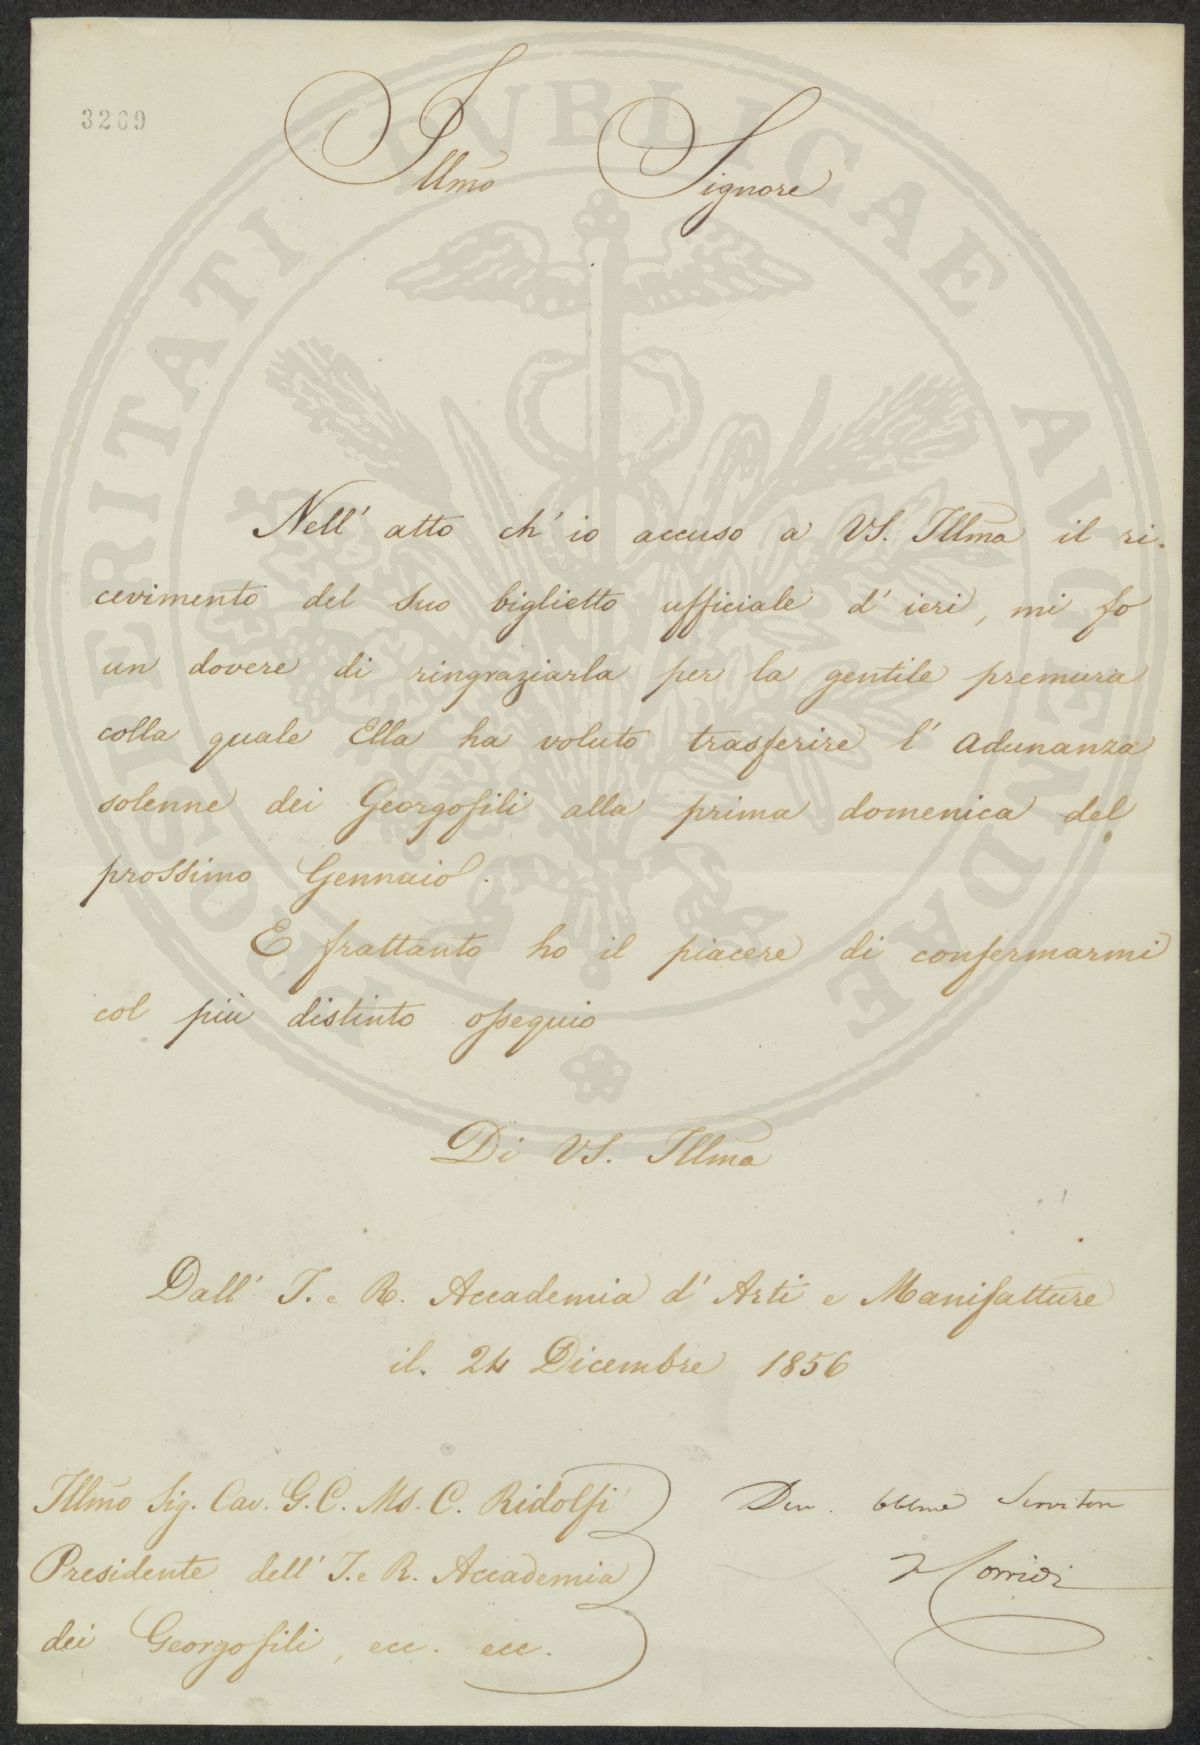 3269
Illmo Signore
Nell' atto ch' io accuso a VS. Illma il ri-
cevimento del suo biglietto ufficiale d' ieri, mi fo
un dovere di ringraziarla per la gentile premura
colla quale Ella ha voluto trasferire l' Adunanza
solenne dei Georgofili alla prima domenica del
prossimo Gennaio.
E frattanto ho il piacere di confermarmi
col più distinto ossequio
Di VS. Illma
Dall' I. e R. Accademia d' Arti e Manifatture
il 24 Dicembre 1856
Illmo Sig. Cav. G. C. Ms. C. Ridolfi
Presidente dell' I. e R. Accademia
dei Georgofili, ecc. ecc.
Dev. Obbmo Servitore
F Corridi
PROSPERITATI PUBLICAE AUGENDAE